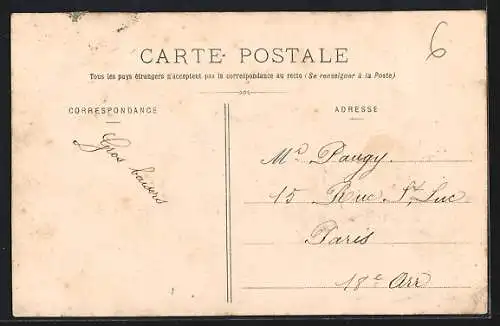 6
CARTE POSTALE
Tous les pays étrangers n'acceptent pas la correspondance au recto (Se renseigner à la Poste)
CORRESPONDANCE
ADRESSE
Gros baisers
Mr Paugy
15 Rue St Luc
Paris
18e Arr